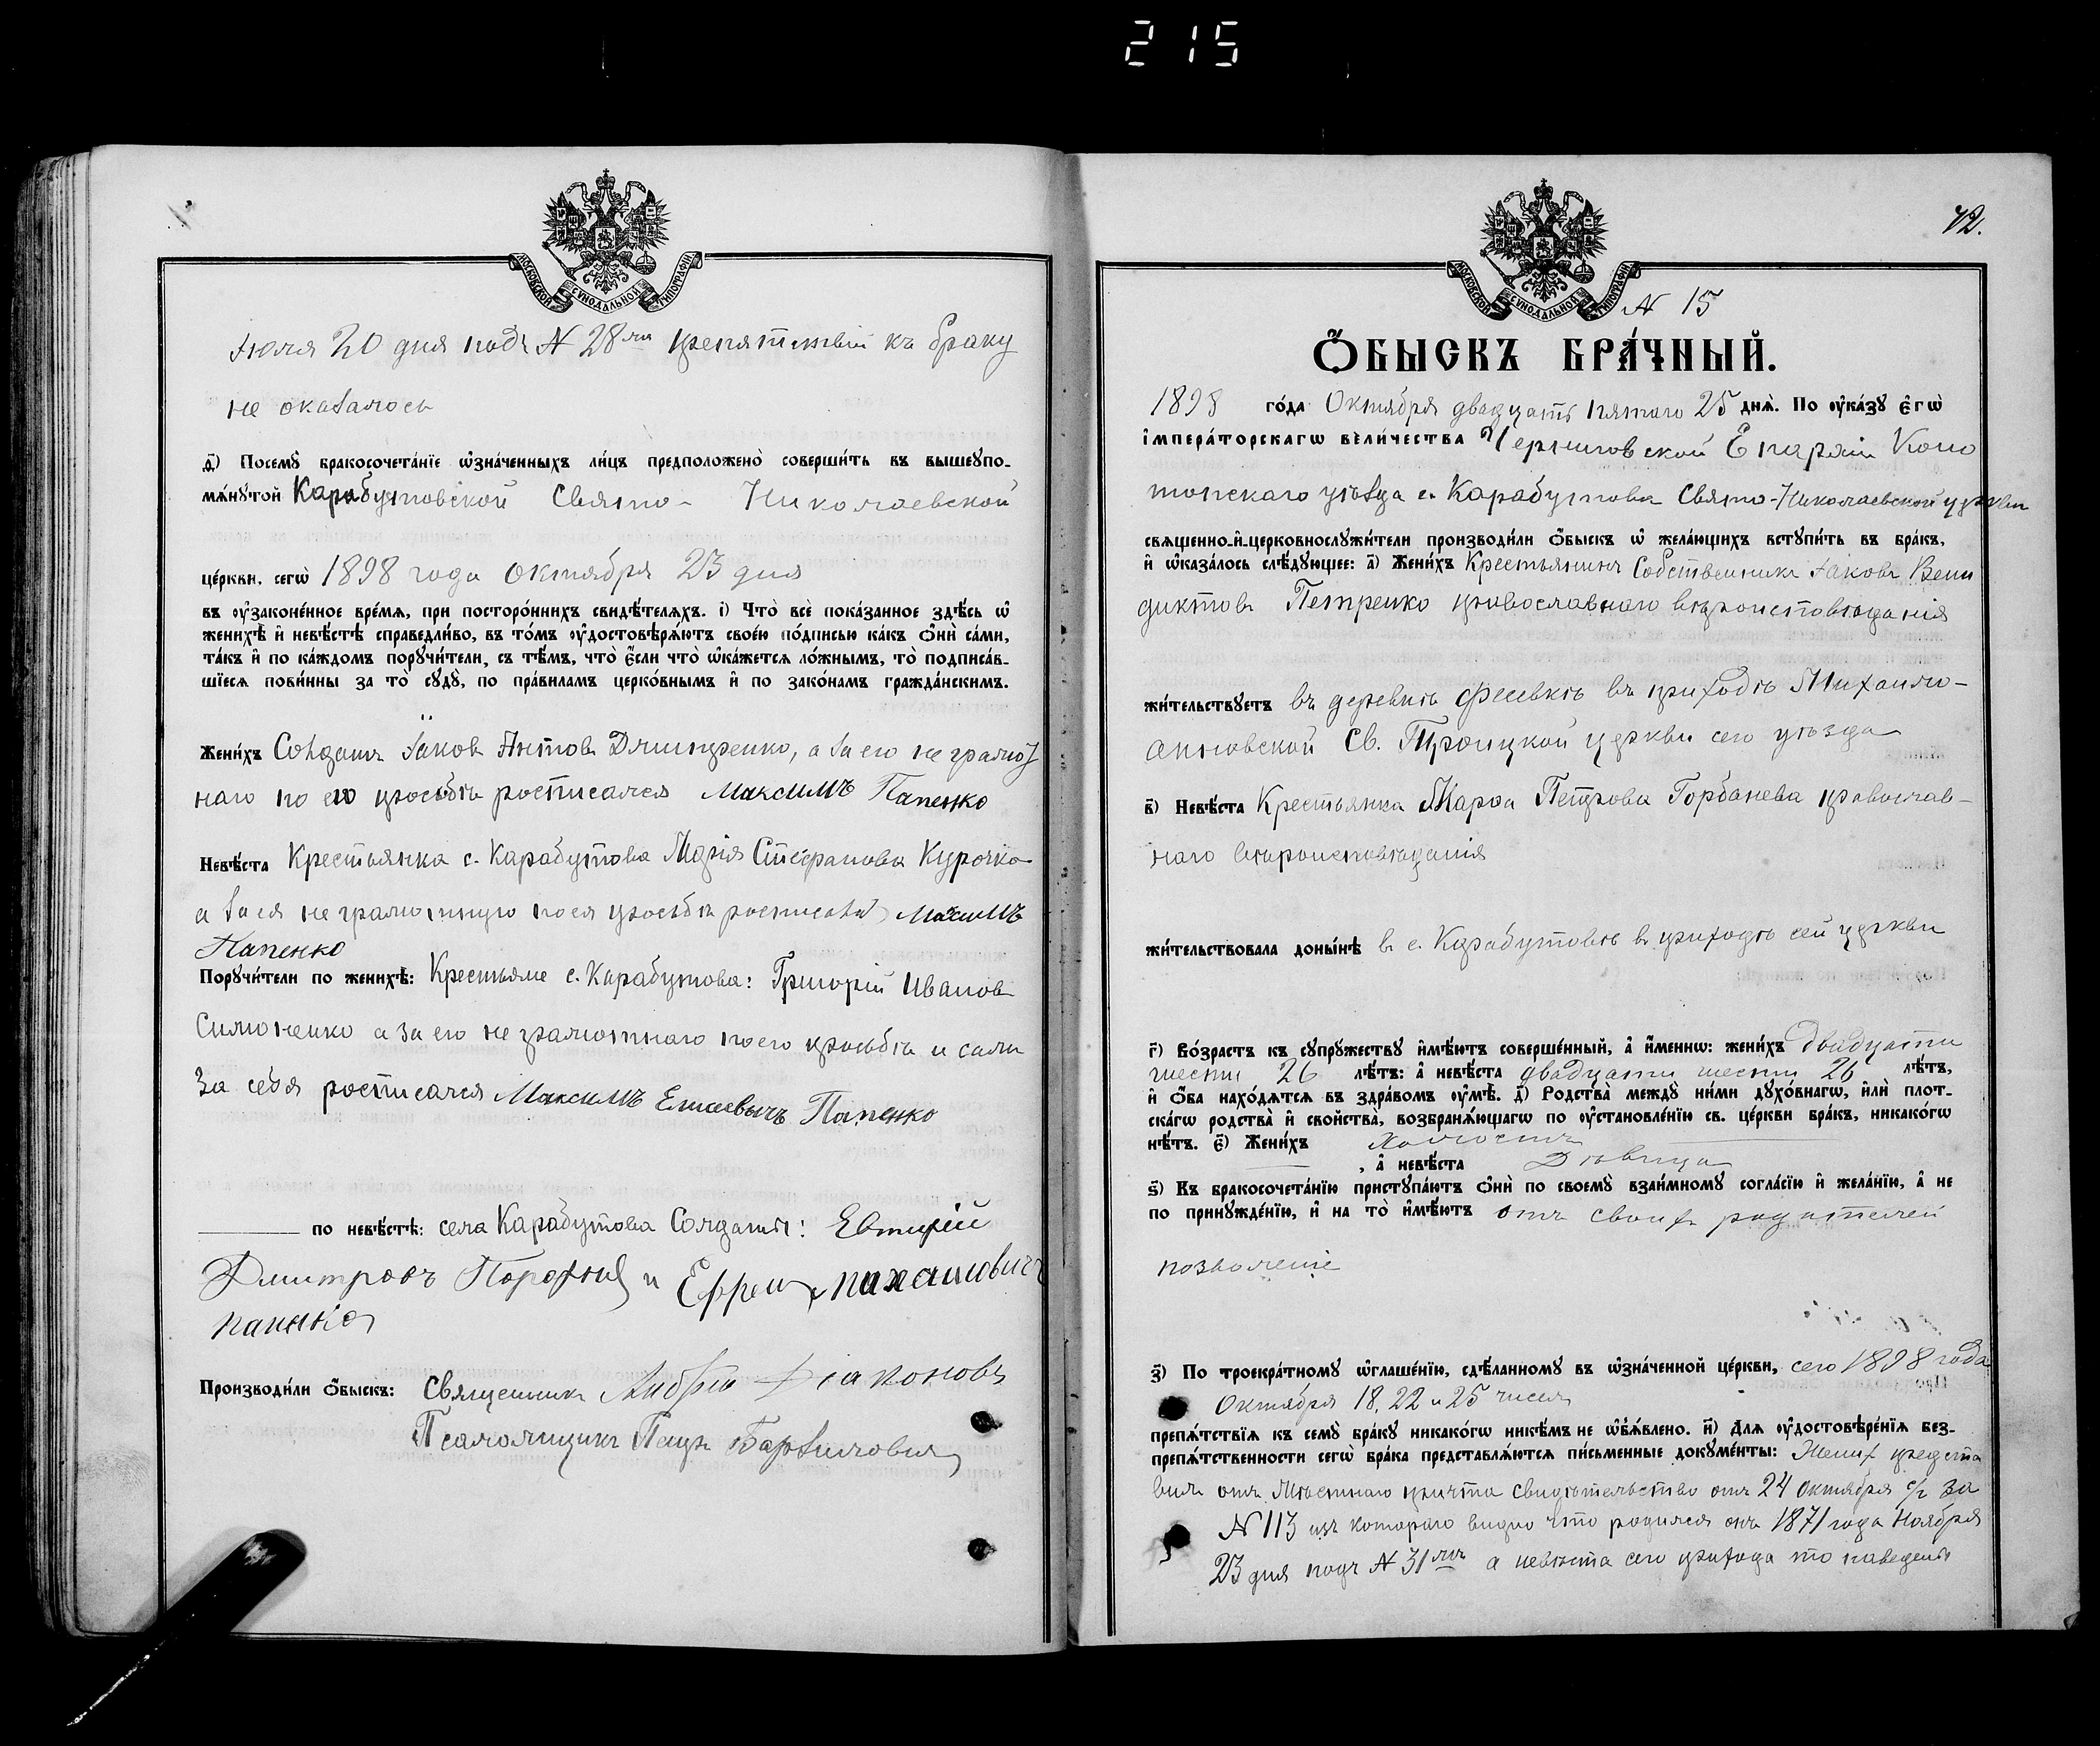 215
МОСКОВСКОЙ СѴНОДАЛЬНОЙ ТИПОГРАФІИ
Іюля 20 дня подъ № 28мъ препятствій къ браку
не оказалось
д҃) Посемꙋ̀ бракосочета́нїе ѡ҆зна́ченныхъ ли́цъ предположено̀ соверши́ть въ вышеꙋпо-
мѧ́нꙋтой Карабутовской Свято- Николаевской
це́ркви, сегѡ̀ 1898 года октября 23 дня
въ ᲂу҆зако́ненное вре́мѧ, при посторо́ннихъ свидѣ́телѧхъ. і҃) Что̀ всѐ пока́занное здѣ́сь ѡ҆
женихѣ̀ и҆ невѣ́стѣ справедли́во, въ то́мъ ᲂу҆достовѣрѧ́ютъ свое́ю по́дписью ка́къ ѻ҆нѝ са́ми,
та́къ и҆ по ка́ждомъ порꙋчи́тели, съ тѣ́мъ, что̀ є҆́сли что̀ ѡ҆ка́жетсѧ ло́жнымъ, то̀ подписа́в-
шїесѧ пови́нны за то̀ сꙋдꙋ̀, по пра́виламъ церко́внымъ и҆ по зако́намъ гражда́нскимъ.
Жени́хъ Солдатъ Іаковъ Антовъ Дмитренко, а за его не грамот
наго по его просьбѣ росписался Максимъ Папенко
Невѣ́ста Крестьянка с. Карабутова Марія Стефанова Курочка
а за ея не грамотную по ея просьбѣ росписался Максимъ
Папенко
Порꙋчи́тели по женихѣ̀: Крестьяне с. Карабутова: Григорій Ивановъ
Симоненко а за его не грамотнаго по его просьбѣ и самъ
за себя росписался Максимъ Елисеевичъ Папенко
по невѣ́стѣ: села Карабутова Солдаты: Евтихій
Дмитровъ и Ефрем
Производи́ли ѻ҆́быскъ: Священникъ Андрей Діаконовъ
Псаломщикъ Петръ
72.
МОСКОВСКОЙ СѴНОДАЛЬНОЙ ТИПОГРАФІИ
№ 15
Ѻ҆́БЫСКЪ БРА́ЧНЫЙ.
1898 го́да Октября двадцать пятаго 25 днѧ̀. По ᲂу҆ка́зꙋ є҆гѡ̀
і҆мпера́торскагѡ вели́чества Черниговской Епархіи Коно
топскаго уѣзда с. Карабутова Свято-Николаевской церкви
свѧщенно-и҆-церковнослꙋжи́тели производи́ли ѻ҆́быскъ ѡ҆ жела́ющихъ встꙋпи́ть въ бра́къ,
и҆ ѡ҆каза́лось слѣ́дꙋющее: а҃) Жени́хъ Крестьянинъ Собственникъ Іаковъ Вени
диктовъ Петренко православнаго вѣроисповѣданія
жи́тельствꙋетъ въ деревнѣ Фесевкѣ въ приходѣ Михайло-
анновской Св. Троицкой церкви сего уѣзда
в҃) Невѣ́ста Крестьянка Марѳа Петрова Горбанева православ-
наго вѣроисповѣданія
жи́тельствовала доны́нѣ въ с. Карабутовѣ въ приходѣ сей церкви
г҃) Во́зрастъ къ сꙋпрꙋ́жествꙋ и҆мѣ́ютъ соверше́нный, а҆̀ и҆́меннѡ: жени́хъ двадцати
шести 26 лѣ́тъ: а҆̀ невѣ́ста двадцати шести 26 лѣ́тъ,
и҆ ѻ҆́ба нахо́дѧтсѧ въ здра́вомъ ᲂу҆мѣ̀. д҃) Родства̀ междꙋ̀ ни́ми дꙋхо́внагѡ, и҆лѝ плот-
ска́гѡ родства̀ и҆ сво́йства, возбранѧ́ющагѡ по ᲂу҆становле́нїю св. це́ркви бра́къ, никако́гѡ
нѣ́тъ. є҃) Жени́хъ Холостъ
, а҆̀ невѣ́ста Дѣвица
ѕ҃) Къ бракосочета́нїю пристꙋпа́ютъ ѻ҆нѝ по своемꙋ̀ взаи́мномꙋ согла́сїю и҆ жела́нїю, а҆̀ не
по принꙋжде́нїю, и҆ на то̀ и҆мѣ́ютъ отъ своихъ родителей
позволеніе
з҃) По троекра́тномꙋ ѡ҆глаше́нїю, сдѣ́ланномꙋ въ ѡ҆зна́ченной це́ркви, сего 1898 года
Октября 18, 22 и 25 чиселъ
препѧ́тствїѧ къ семꙋ̀ бра́кꙋ никако́гѡ никѣ́мъ не ѡ҆б̾ѧ́влено. и҃) Для ᲂу҆достовѣре́нїѧ без-
препѧ́тственности сегѡ̀ бра́ка представлѧ́ютсѧ пи́сьменные докꙋме́нты: Женихъ предста
вилъ отъ Мѣстнаго причта свидѣтельство отъ 24 Октября с/г за
№ 113 изъ котораго видно что родился онъ 1871 года Ноября
23 дня подъ № 31мъ а невѣста сего прихода по наведены